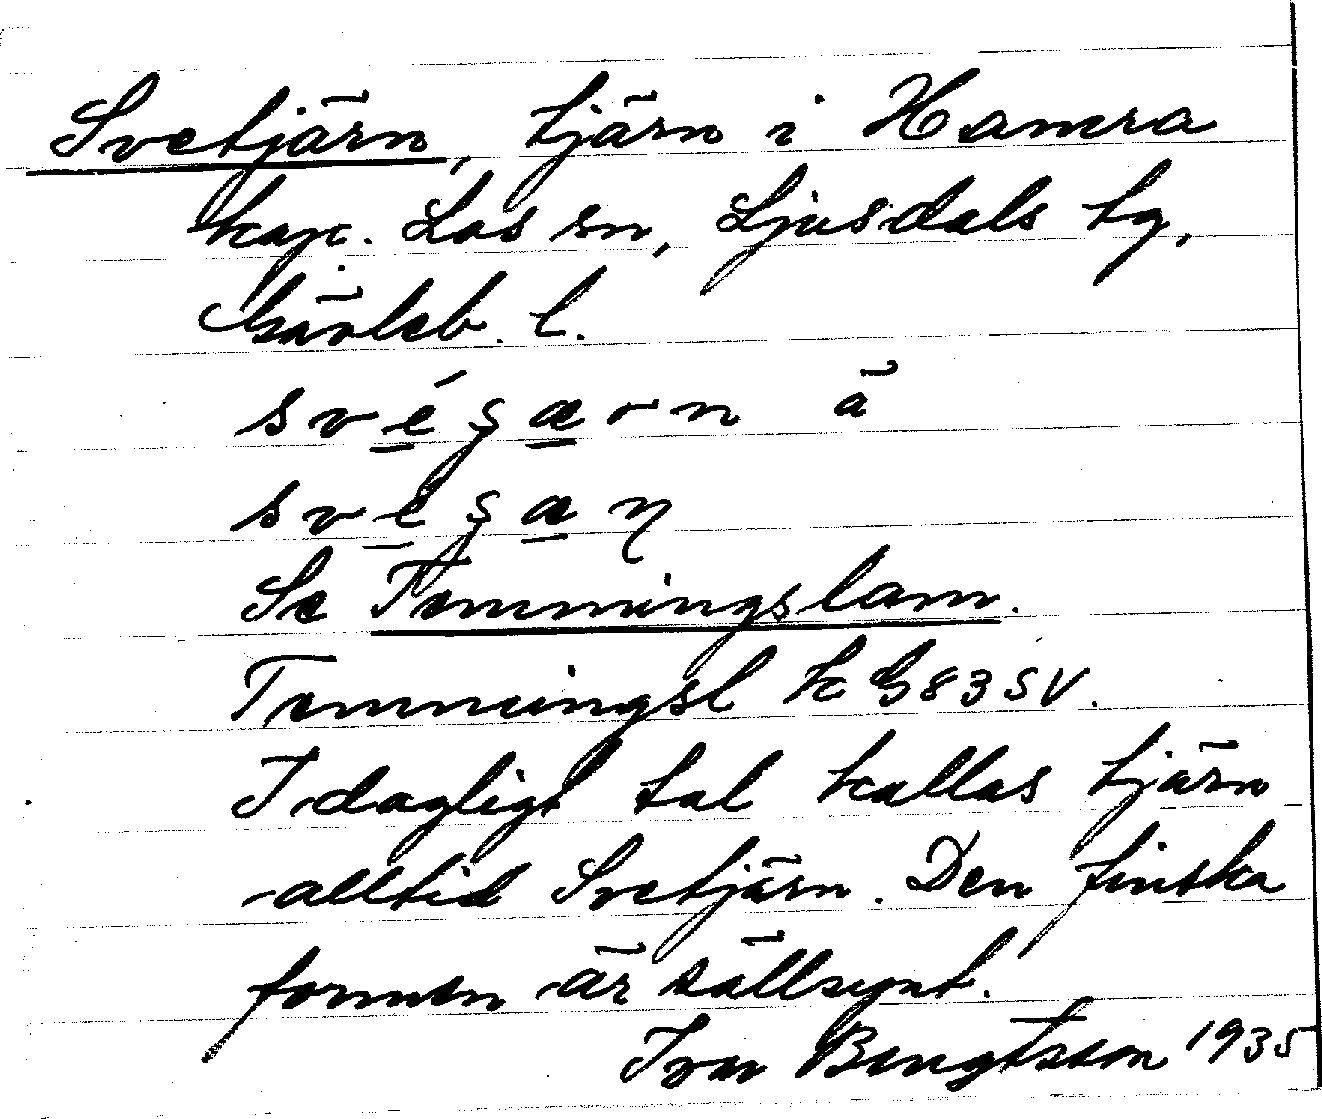 Svetjärn, tjärn i Hamra
kap. Los sn, Ljusdals tg,
Gävleb. l.
svéʂærn ä
sveʂæn
Se Temmingslam.
Temmingsl k G83SV.
I dagligt tal kallas tjärn
alltid Svetjärn. Den finska
formen är sällsynt.
Ivar Bengtsson 1935